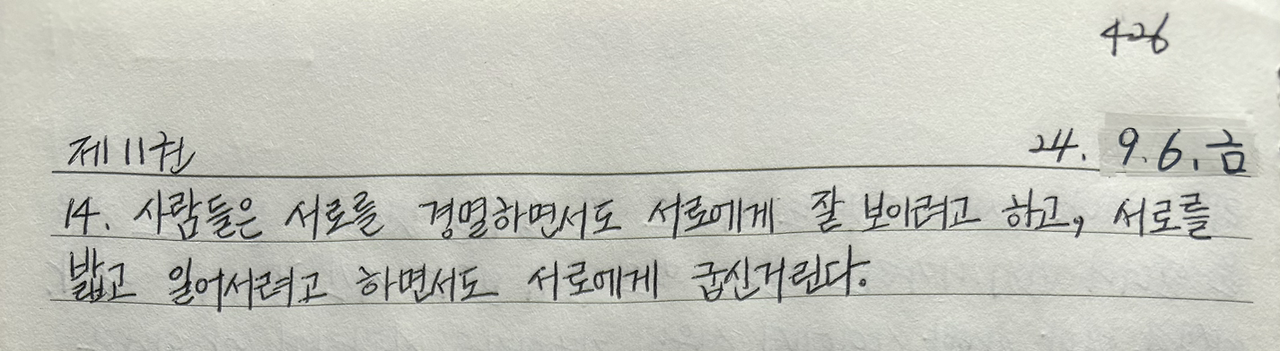 426
제11권 24. 9. 6. 금
14. 사람들은 서로를 경멸하면서도 서로에게 잘 보이려고 하고, 서로를
밟고 일어서려고 하면서도 서로에게 굽신거린다.